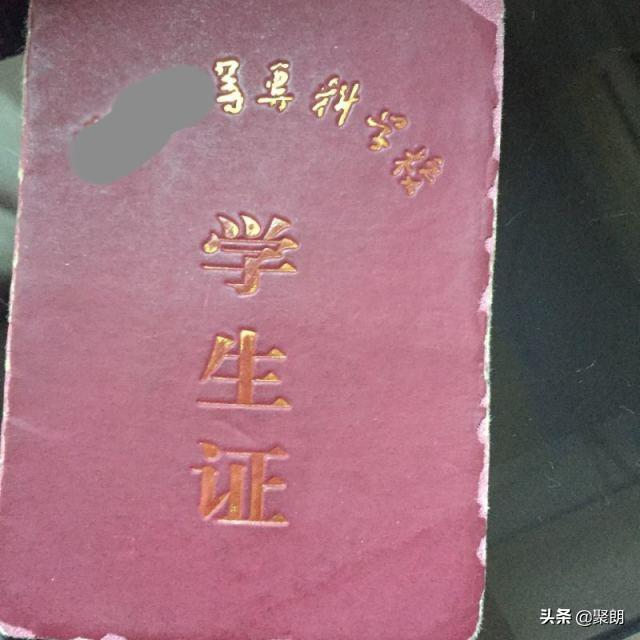 等专科学校
学
生
证
头条 @聚朗